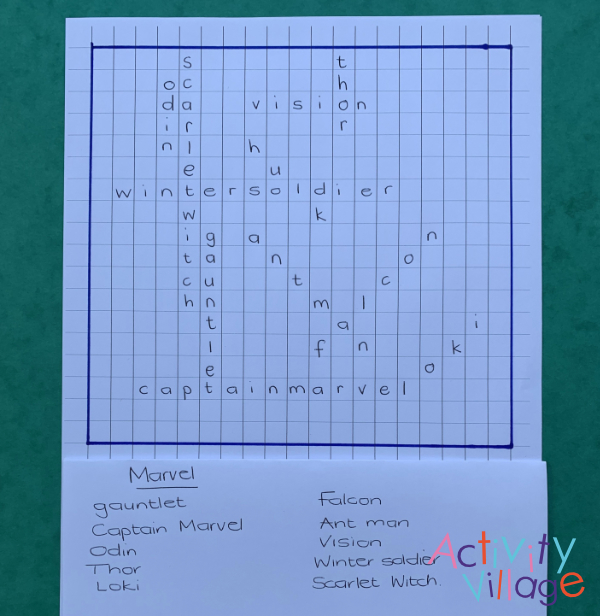 s t
o c h
d a v i s i o n
i r r
n l h
e u
w i n t e r s o l d i e r
w k
i g a n
t a n o
c u t c
h n m l
t a i
l f n k
e o
c a p t a i n m a r v e l
Marvel
gauntlet
Captain Marvel
Odin
Thor
Loki
Falcon
Ant man
Vision
Winter soldier
Scarlet Witch.
Activity
Village